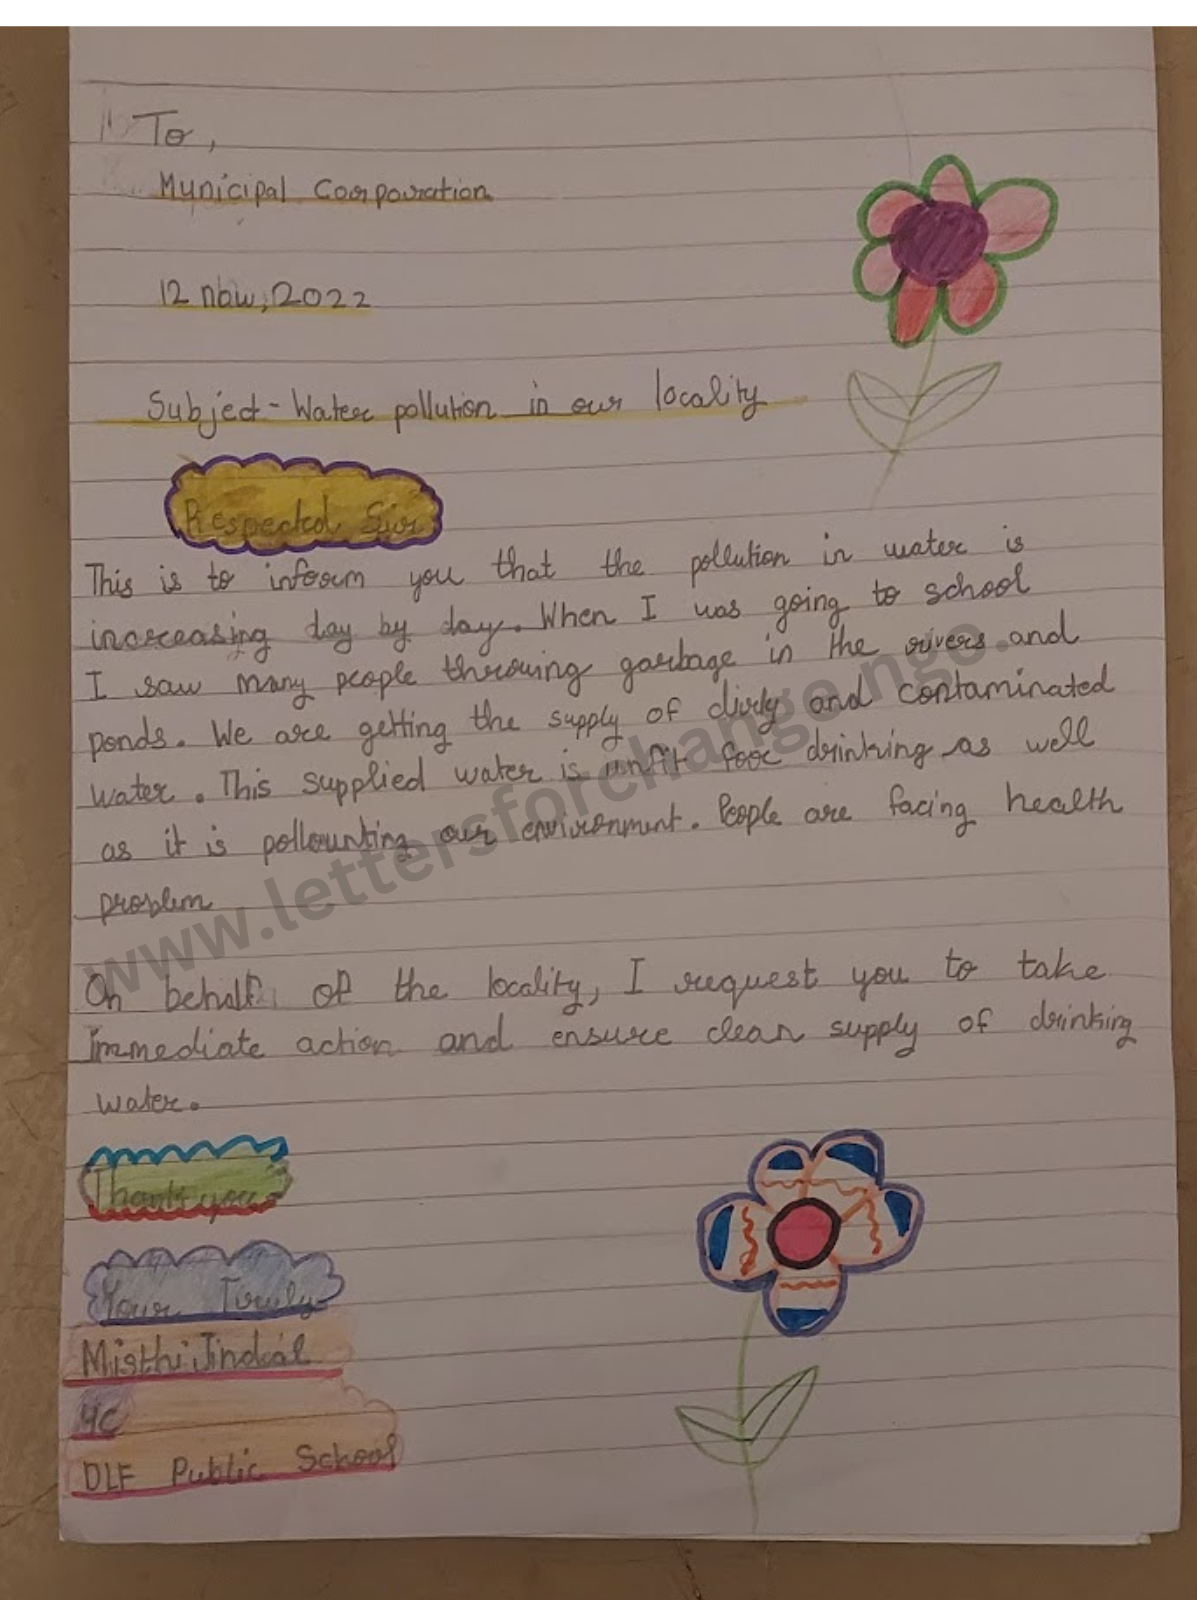 To,
Municipal Corporation
12 nov, 2022
Subject - Water pollution in our locality
Respected Sir
This is to inform you that the pollution in water is
increasing day by day. When I was going to school
I saw many people throwing garbage in the rivers and
ponds. We are getting the supply of dirty and contaminated
water. This supplied water is unfit for drinking as well
as it is pollounting our environment. People are facing health
problem
On behalf of the locality, I request you to take
immediate action and ensure clean supply of drinking
water.
Thank you
Your Truly
Misthi Jindal
4C
DLF Public School
www.lettersforchange.ngo